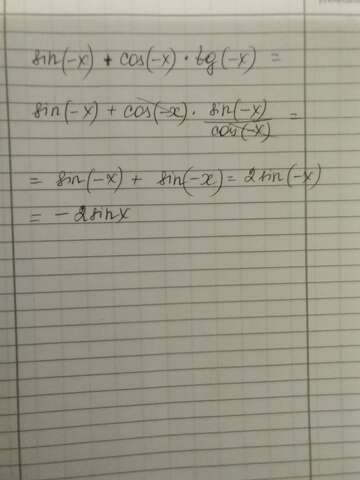 sin(-x) + cos(-x) · tg(-x) =
sin(-x) + cos(-x) · sin(-x)/cos(-x) =
= sin(-x) + sin(-x) = 2sin(-x)
= - 2sinx